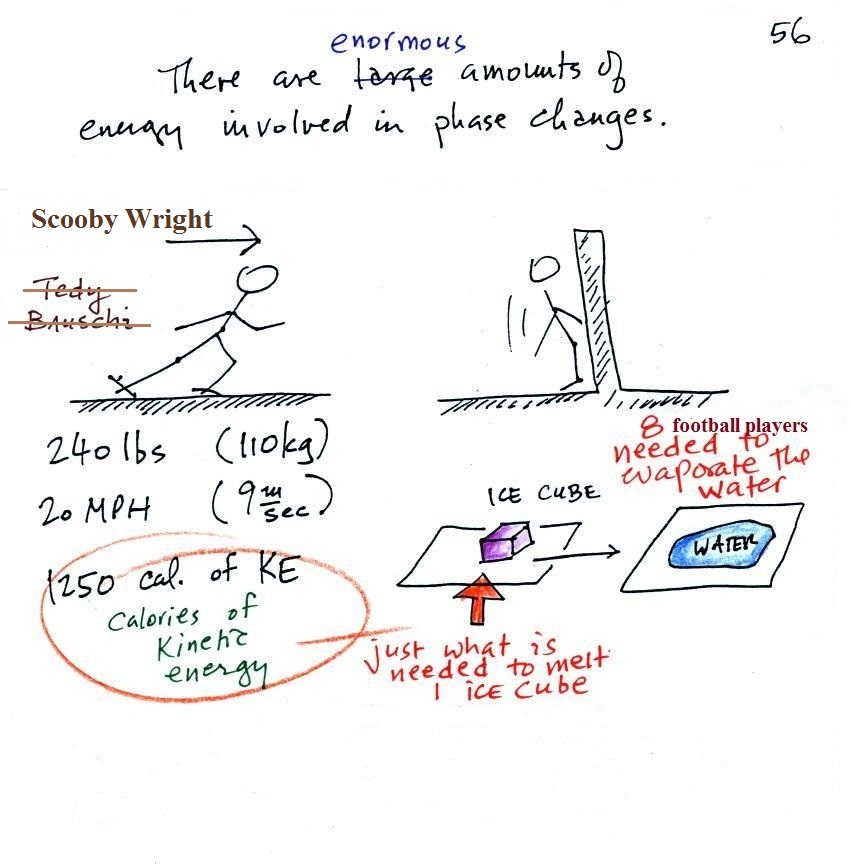 56
enormous
There are large amounts of
energy involved in phase changes.
Scooby Wright
Tedy
Bruschi
240 lbs (110kg)
20 MPH (9 m/sec)
1250 cal. of KE
Calories of
Kinetic
energy
8 football players
needed to
evaporate the
water
ICE CUBE
WATER
just what is
needed to melt
1 ICE Cube